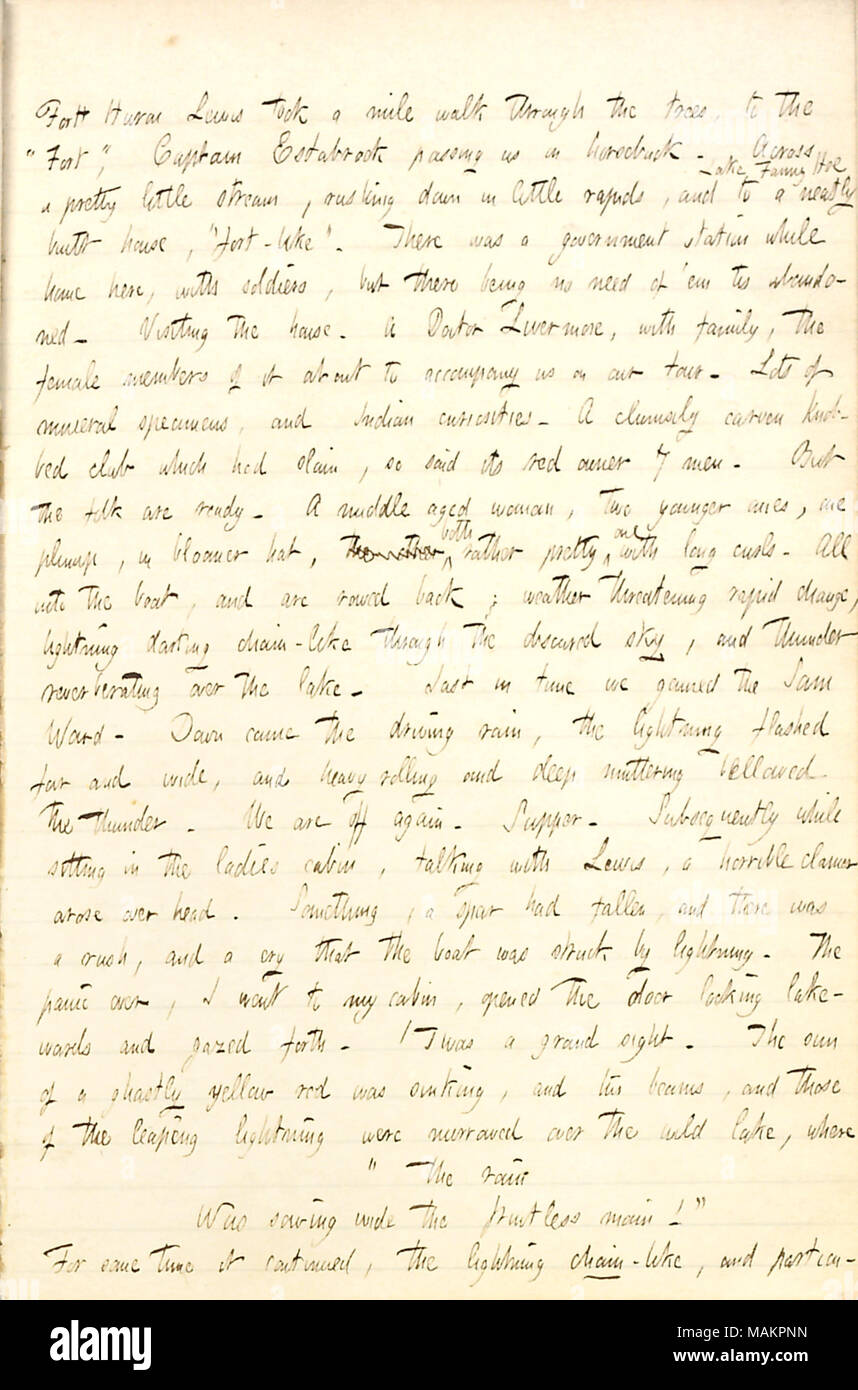 Forth Huron Lewis took a mile walk through the trees, to the
"Fort," Captain Estabrook passing us on horseback. Across
Lake Fanny Hoe
a pretty little stream, rushing down in little rapids, and to a neatly
built house, "fort-like". There was a government station while
home here, with soldiers, but there being no need of 'em tis abando-
ned. Visiting the house. A Doctor Livermore, with family, the
female members of it about to accompany us on our tour. Lots of
mineral specimens, and Indian curiosities. A clumsily carven knob-
bed club which had slain, so said its red owner 7 men. But
the folk are ready. A middle aged woman, two younger ones, one
plump, in bloomer hat, the other, both rather pretty, one with long curls. All
into the boat, and are rowed back; weather threatening rapid change,
lightning darting chain-like through the obscured sky, and thunder
reverberating over the lake. Just in time we gained the Sam
Ward. Down came the driving rain, the lightning flashed
far and wide, and heavy rolling and deep muttering bellowed
the thunder. We are off again. Supper. Subsequently while
sitting in the ladies cabin, talking with Lewis, a horrible clamor
arose over head. Something, a spar had fallen, and there was
a rush, and a cry that the boat was struck by lightning. The
panic over, I went to my cabin, opened the door looking lake-
wards and gazed forth. 'Twas a grand sight. The sun
of a ghastly yellow red was sinking, and his beams, and those
of the leaping lightning were mirrored over the wild lake, where
"The rain
Was sowing wide the fruitless main!"
For some time it continued, the lightning chain-like, and particu-
alamy
Image ID: MAKPNN
www.alamy.com